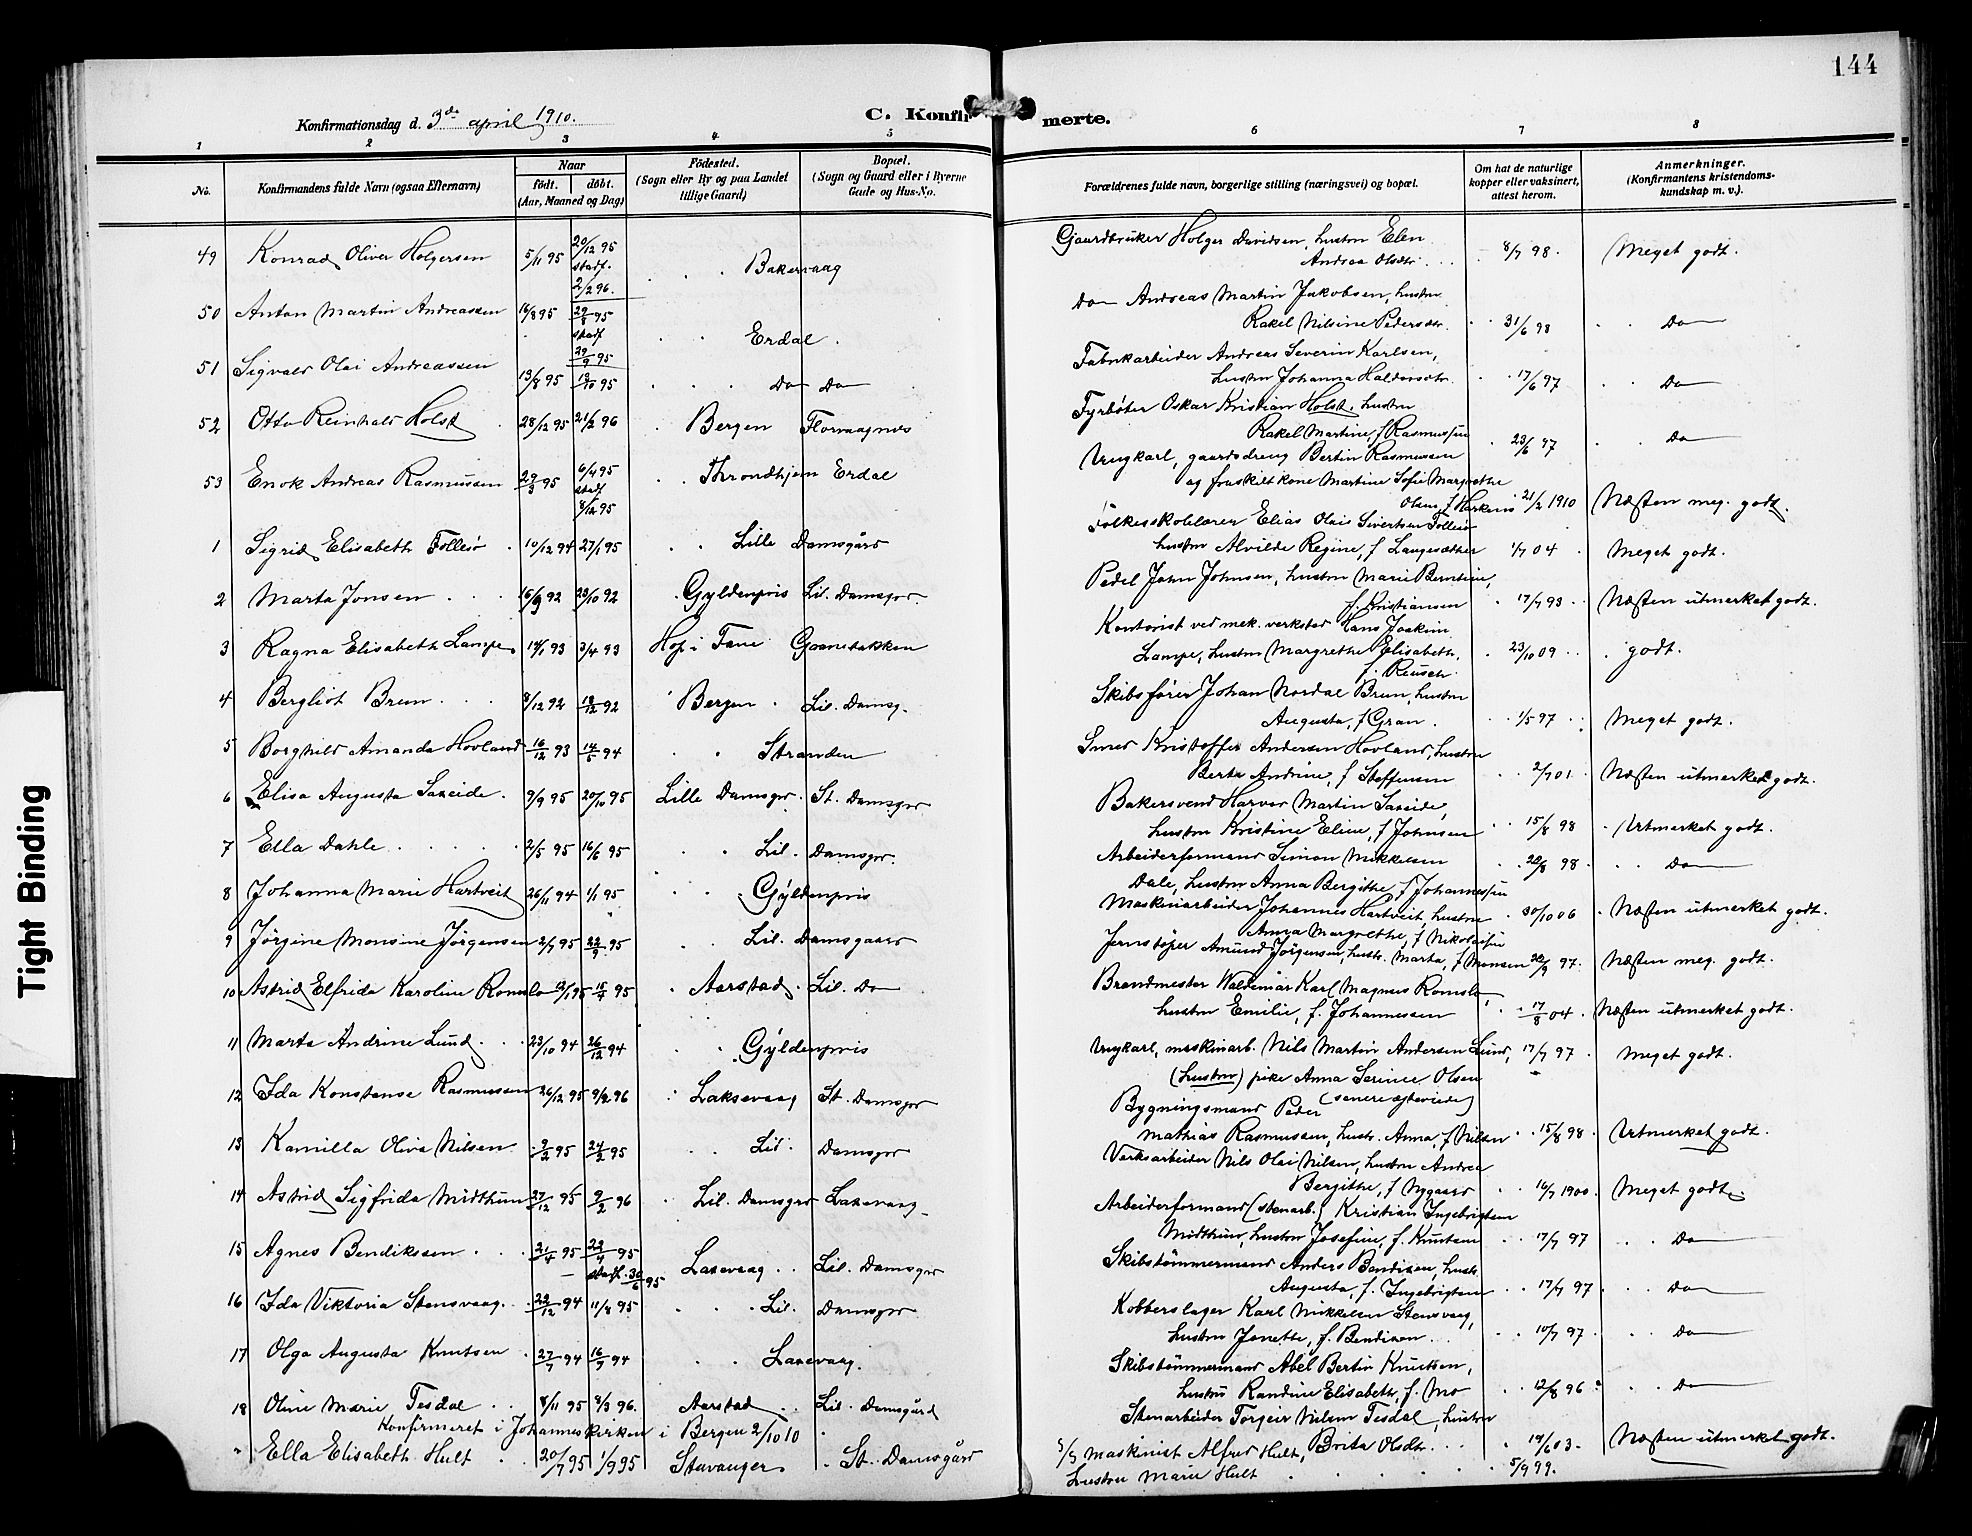 144
Konfirmationsdag d. 3de april 1910.
C. Konfirmerte.
1 2 3 4 5 6 7 8
No.
Konfirmandens fulde Navn (ogsaa Efternavn)
Naar
födt. döbt.
(Aar, Maaned og Dag)
Födested.
(Sogn eller By og paa Landet
tillige Gaard)
Bopæl.
(Sogn og Gaard eller i Byerne
Gade og Hus-No.
Forældrenes fulde navn, borgerlige stilling (næringsvei) og bopæl.
Om hat de naturlige
kopper eller vaksinert,
attest herom.
Anmerkninger.
(Konfirmantens kristendoms-
kundskap m. v.).
49 Konrad Oliver Holgersen 5/11 95 20/12 95 stadf. 2/2 96. Bakervaag
Gaardbruker Holger Davidsen, hustru Elen
Andrea Olsdtr. 8/7 98. Meget godt.
50 Anton Martin Andreassen 16/8 95 29/8 95 stadf 29/9 95 Erdal
Do Andreas Martin Jakobsen, hustru
Rakel Nilsine Pedersdtr. 31/6 98 Do
51 Sigvald Olai Andreassen 13/8 95 13/10 95 Do Do
Fabrikarbeider Andreas Severin Karlsen,
hustru Johanna Haldorsdtr. 17/6 97 Do
52 Otto Reinhald Holst 28/12 95 21/2 96 Bergen Florvaagnes
Fyrböter Oskar Kristian Holst, hustru
Rakel Martine, f Rasmussen 23/6 97 Do
53 Enok Andreas Rasmussen 29/3 95 6/4 95 stadf 8/12 95 Throndhjem Erdal
Ungkarl, gaardsdreng Bertin Rasmussen
og fraskilt kone Martine Sofie Margrethe
Olsen, f Harkens 21/2 1910 Næsten meg. godt.
1 Sigrid Elisabeth Follesö 10/12 94 27/1 95 Lille Damsgård
Folkeskolelærer Elias Olais Sivertsen Follesö
hustru Alvilde Regine, f Langesæther 1/7 04 Meget godt.
2 Marta Jonsen 16/9 92 23/10 92 Gyldenpris Lil. Damsgor
Pedel John Johnsen, hustru Marie Berntine,
f. Kristiansen 17/7 93 Næsten utmerket godt.
3 Ragna Elisabeth Lampe 14/1 93 3/4 93 Hop i Fane Graanetakken
Kontorist ved mek. verksted Hans Joakim
Lampe, hustru Margrethe Elisabeth,
f. Reusch. 23/10 09 godt.
4 Bergliot Brun 8/12 92 18/12 92 Bergen Lil. Damsg.
Skibsförer Johan Nordal Brun, hustru
Augusta, f Gran. 1/5 97 Meget godt.
5 Borghild Amanda Hovland 16/12 93 14/5 94 Stranden
Smed Kristoffer Andersen Hovland, hustru
Berta Andrine, f Steffensen 2/7 01 Næsten utmerket godt.
6 Elisa Augusta Saxeide 9/9 95 20/10 95 Lille Damsgor St. Damsgor
Bakersvend Havar Martin Saxeide,
hustru Kristine Eline, f Johnsen 15/8 98 Utmerket godt.
7 Ella Dahle 2/5 95 16/6 95 Lil. Damsgor.
Arbeiderformand Simon Mikkelsen
Dale, hustru Anna Bergithe, f Johannessen 20/8 98 Do
8 Johanna Marie Hartveit 26/11 94 1/1 95 Gyldenpris
Maskinarbeider Johannes Hartveit, hustru
Anna Margrethe, f Nikolaisen 30/10 06 Næsten utmerket godt.
9 Jörgine Monsine Jörgensen 2/7 95 22/9 95 Lil. Damsgaard
Jernstöper Amund Jörgensen, hustr. Marta, f Monsen 22/9 97 Næsten meg. godt.
10 Astrid Elfrida Karoline Romslo 12/1 95 15/4 95 Aarstad Lil. Do
Brandmester Waldemar Karl Magnus Romslo,
hustru Emilie, f. Johannessen 17/8 04 Næsten utmerket godt.
11 Marta Andrine Lund 23/10 94 26/12 94 Gyldenpris
Ungkarl, maskinarb. Nils Martin Andersen Lund,
(hustru) pike Anna Serine Olsen
(senere egteviede) 17/7 97 Meget godt.
12 Ida Konstanse Rasmussen 26/12 95 9/2 96 Laksevaag St. Damsgor
Bygningsmand Peder
Mathias Rasmussen, hustr. Anna, f Nilsen 15/8 98 Utmerket godt.
13 Kamilla Oliva Nilsen 9/2 95 24/2 95 Lil. Damsgor
Verksarbeider Nils Olai Nilsen, hustru Andrea
Bergithe, f Nygaard 16/7 1900 Meget godt.
14 Astrid Sigfrida Midthun 27/12 95 9/2 96 Lil. Damsgor Laxevaag
Arbeiderformand (stenarb.) Kristian Ingebrigtsen
Midthun, hustru Josefine, f. Knutsen 17/7 97 Do
15 Agnes Bendiksen 21/4 95 22/4 95 stadf. 30/6 95 Laxevaag Lil. Damsgor
Skibstömmermand Anders Bendixen, hustr.
Augusta, f. Ingebrigtsen 17/7 97 Do
16 Ida Viktoria Stensvaag 22/12 94 11/8 95 Lil. Damsgor
Kobberslager Karl Mikkelsen Stensvaag,
hustru Janette, f. Bendixen 10/7 97 Do
17 Olga Augusta Knutsen 27/7 94 16/9 94 Laxevaag.
Skibstömmermand Abel Bertin Knutsen,
hustru Randine Elisabeth, f. Mo 12/8 96 Do
18 Oline Marie Tesdal 8/11 95 8/3 96. Aarstad Lil. Damsgård
Stenarbeider Torgeir Nilsen Tesdal, hustru
Brita Olsdtr. 19/6 03. Næsten utmerket godt.
Konfirmeret i Johanneskirken i Bergen 2/10 10
" Ella Elisabeth Hult 20/7 95 1/9 95 Stavanger St. Damsgård
S/S Maskinist Alfred Hult,
hustru Marie Hult 5/9 99.
Tight Binding